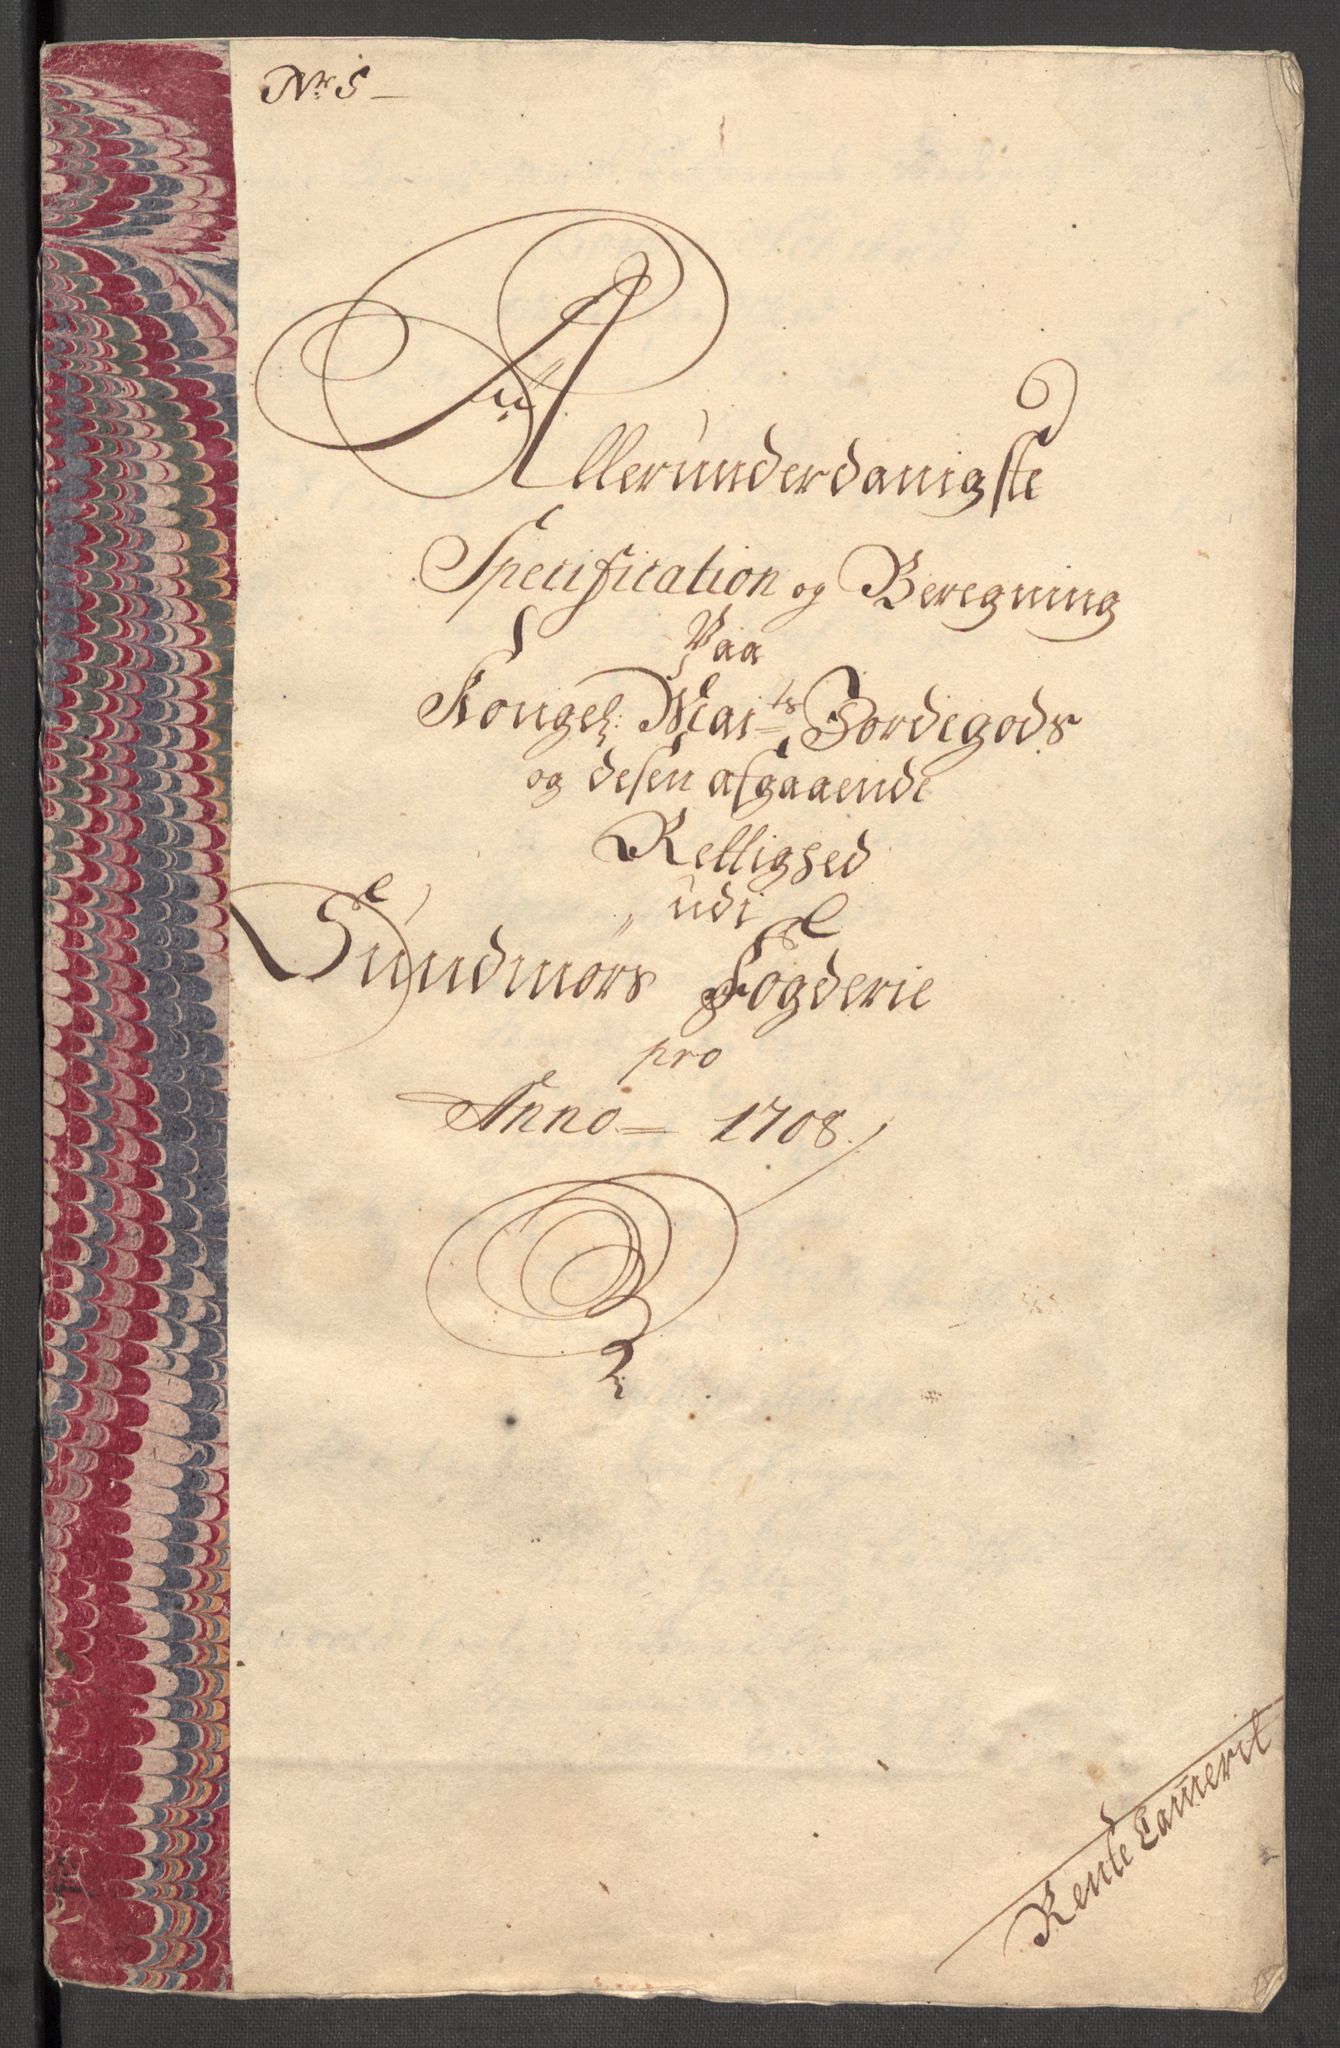 Nr 5
Allerunderdanigste
Specification og Beregning
Paa
Kongel: Maits Jordegods
og desen afgaaende
Rettighed
udi
Sundmørs Fogderie
pro
Anno 1708
Rente Camerit